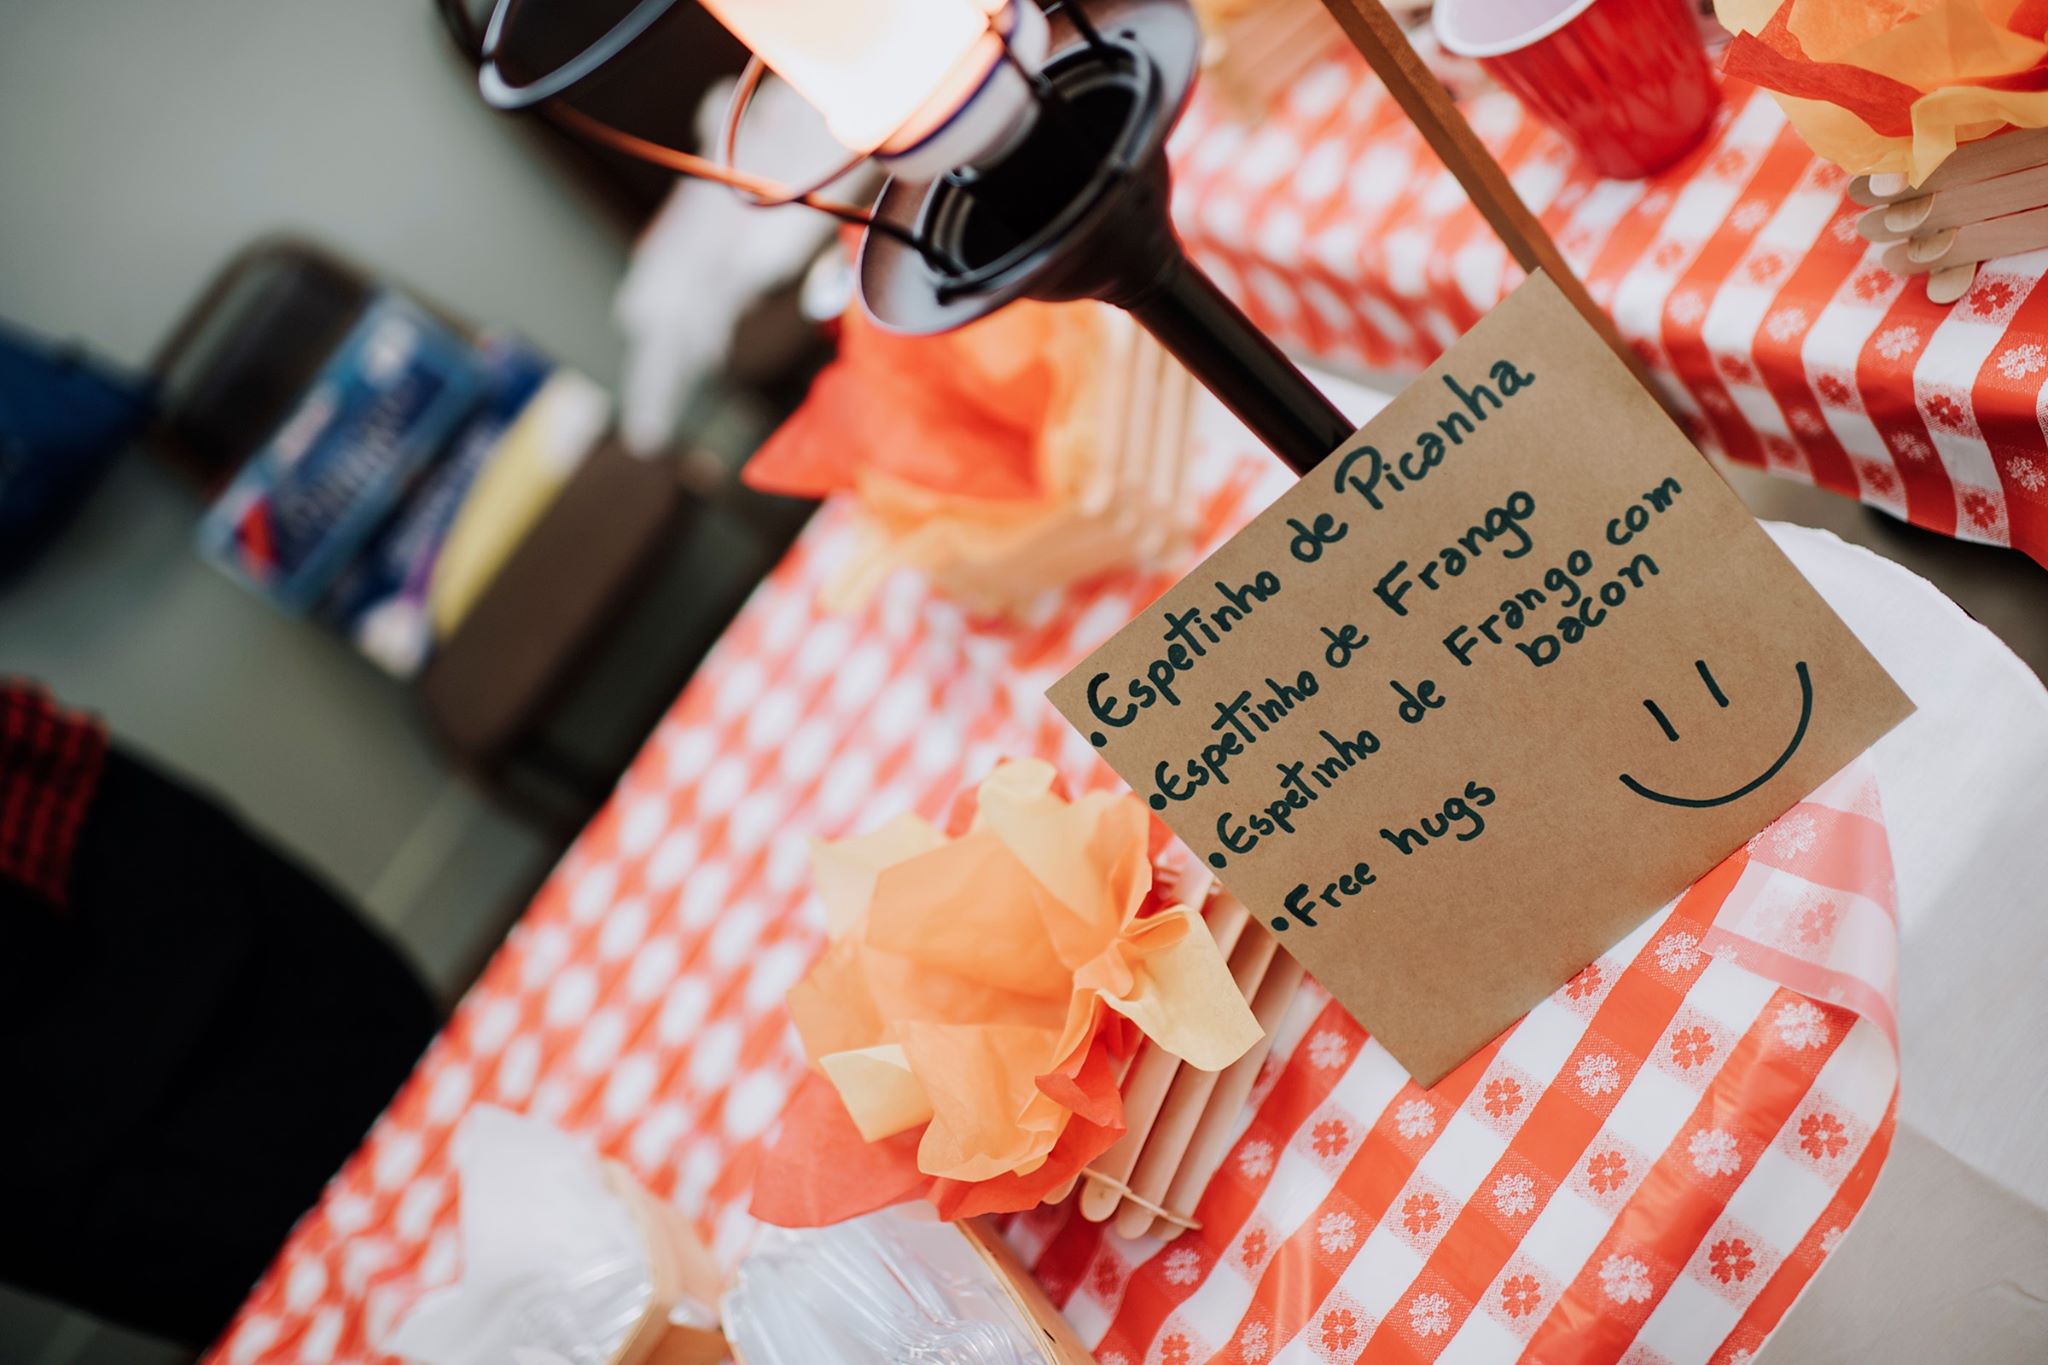 • Espetinho de Picanha
• Espetinho de Frango
• Espetinho de Frango com
bacon
• Free hugs